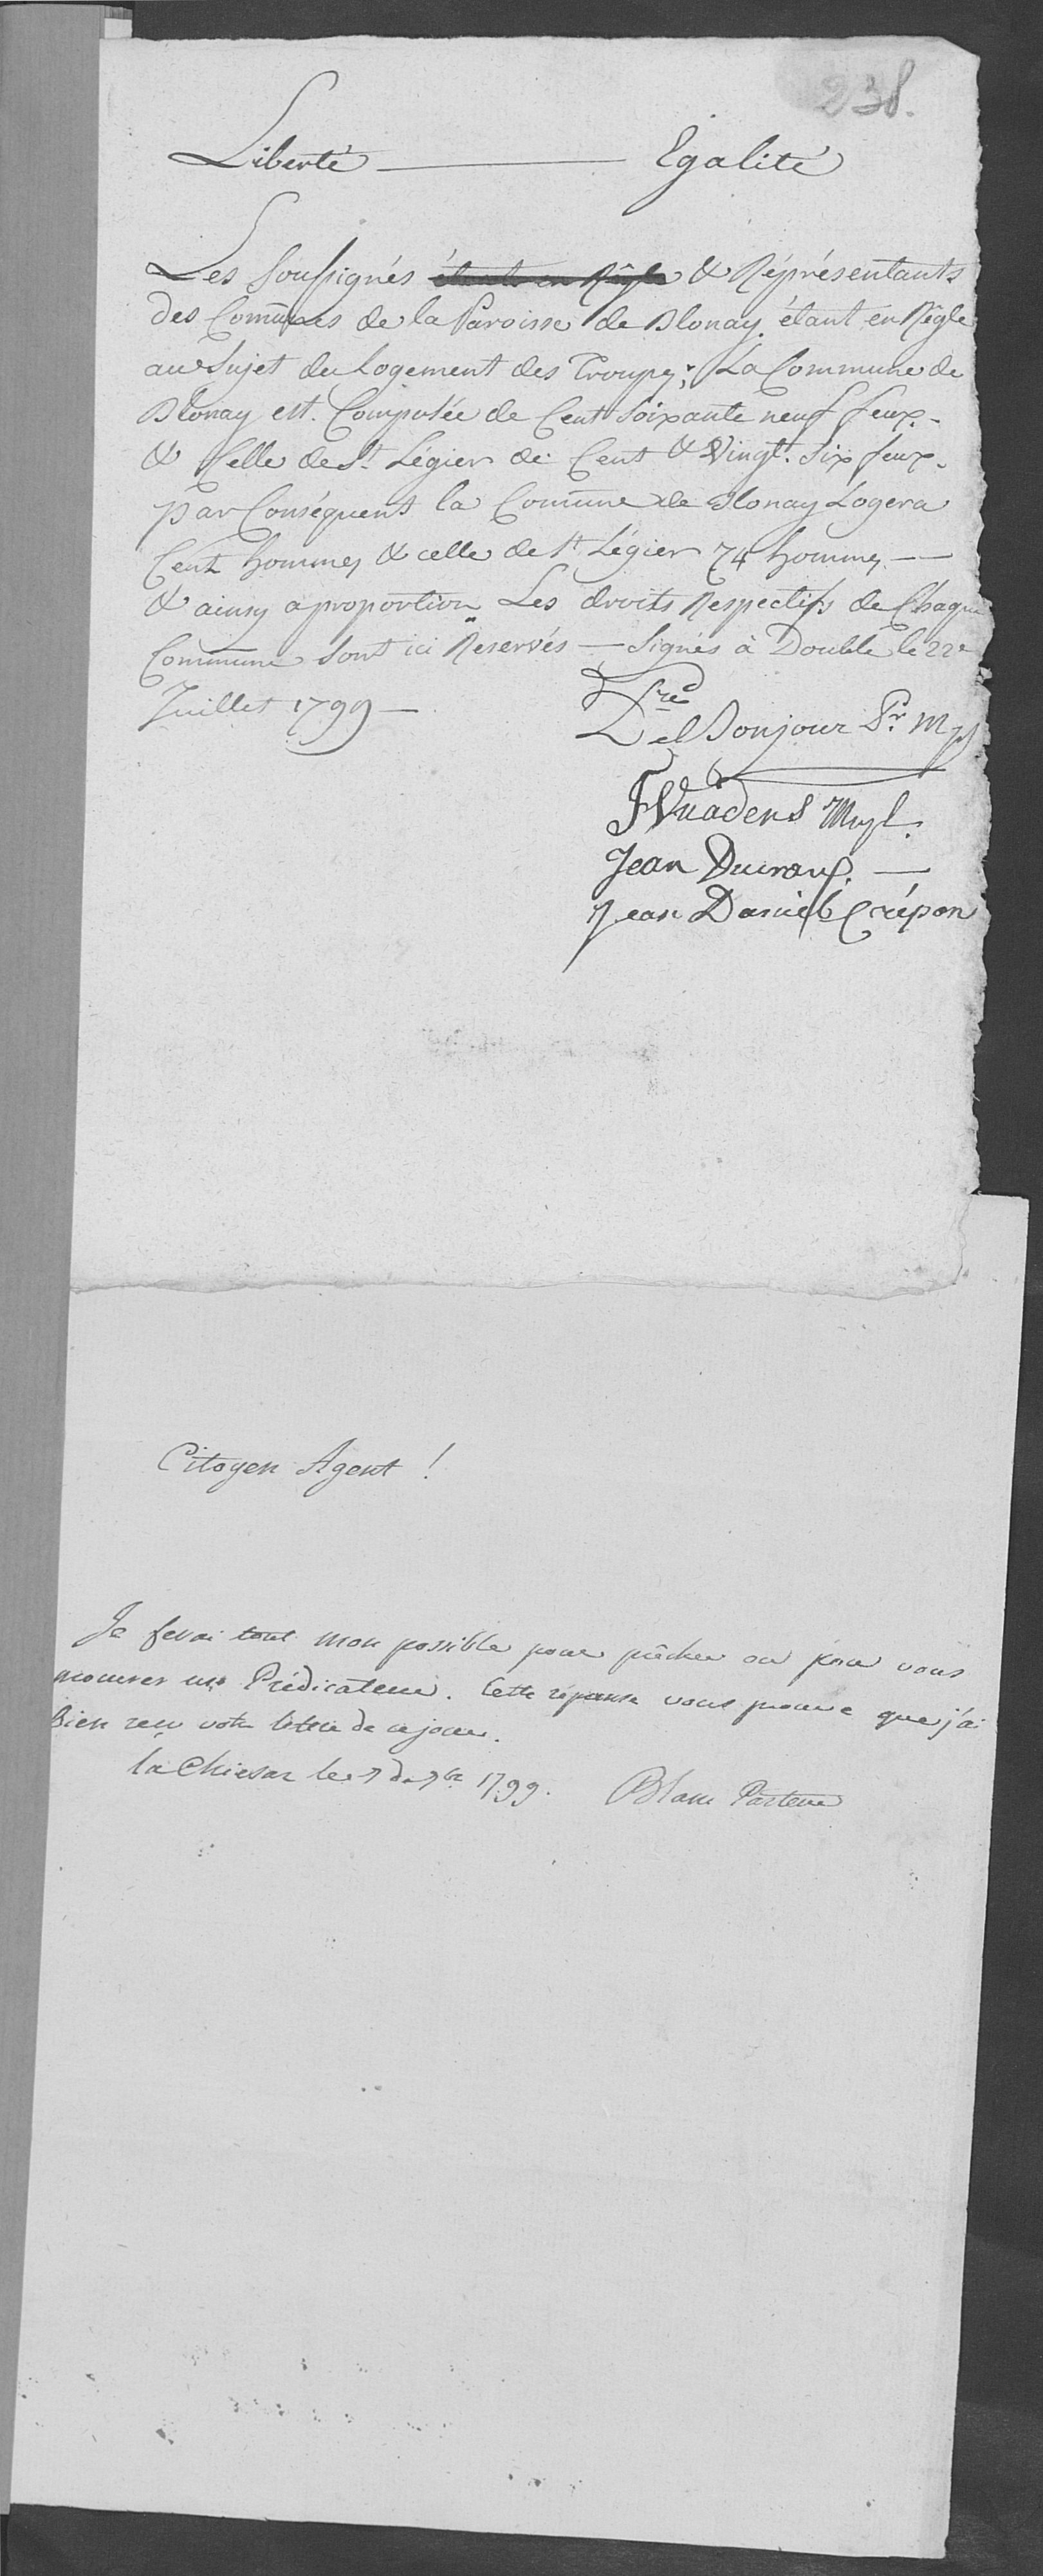 238.
Liberté — Egalité
Les Soussignés étants en Règle & Réprésentants
des Communes de la Paroisse de Blonay. étant en Règle
au Sujet du Logement des Troupes; La Commune de
Blonay est. Composée de Cent Soixante neuf feux.
& Celle de St. Légier de Cent & Vingt. Six feux.
par Conséquent la Comune de Blonay Logera
Cent hommes & celle de St Légier 74 hommes —
& ainsy a proportion Les droits Respectifs de Chaque
Commune Sont ici Reservés — Signés à Double le 22e
Juillet 1799 —
Del Bonjour Pr. Mpl
F Vuadens Mpl.
Jean Ducraux. —
Jean Daniel Crépon
Citoyen Agent !
Je ferai tout mon possible pour prêcher ou pour vous
procurer un Prédicateur. Cette réponse vous prouve que j'ai
bien reçu votre lettre de ce jour.
la Chiesaz le 7 de 7bre 1799. Blanc Pasteur